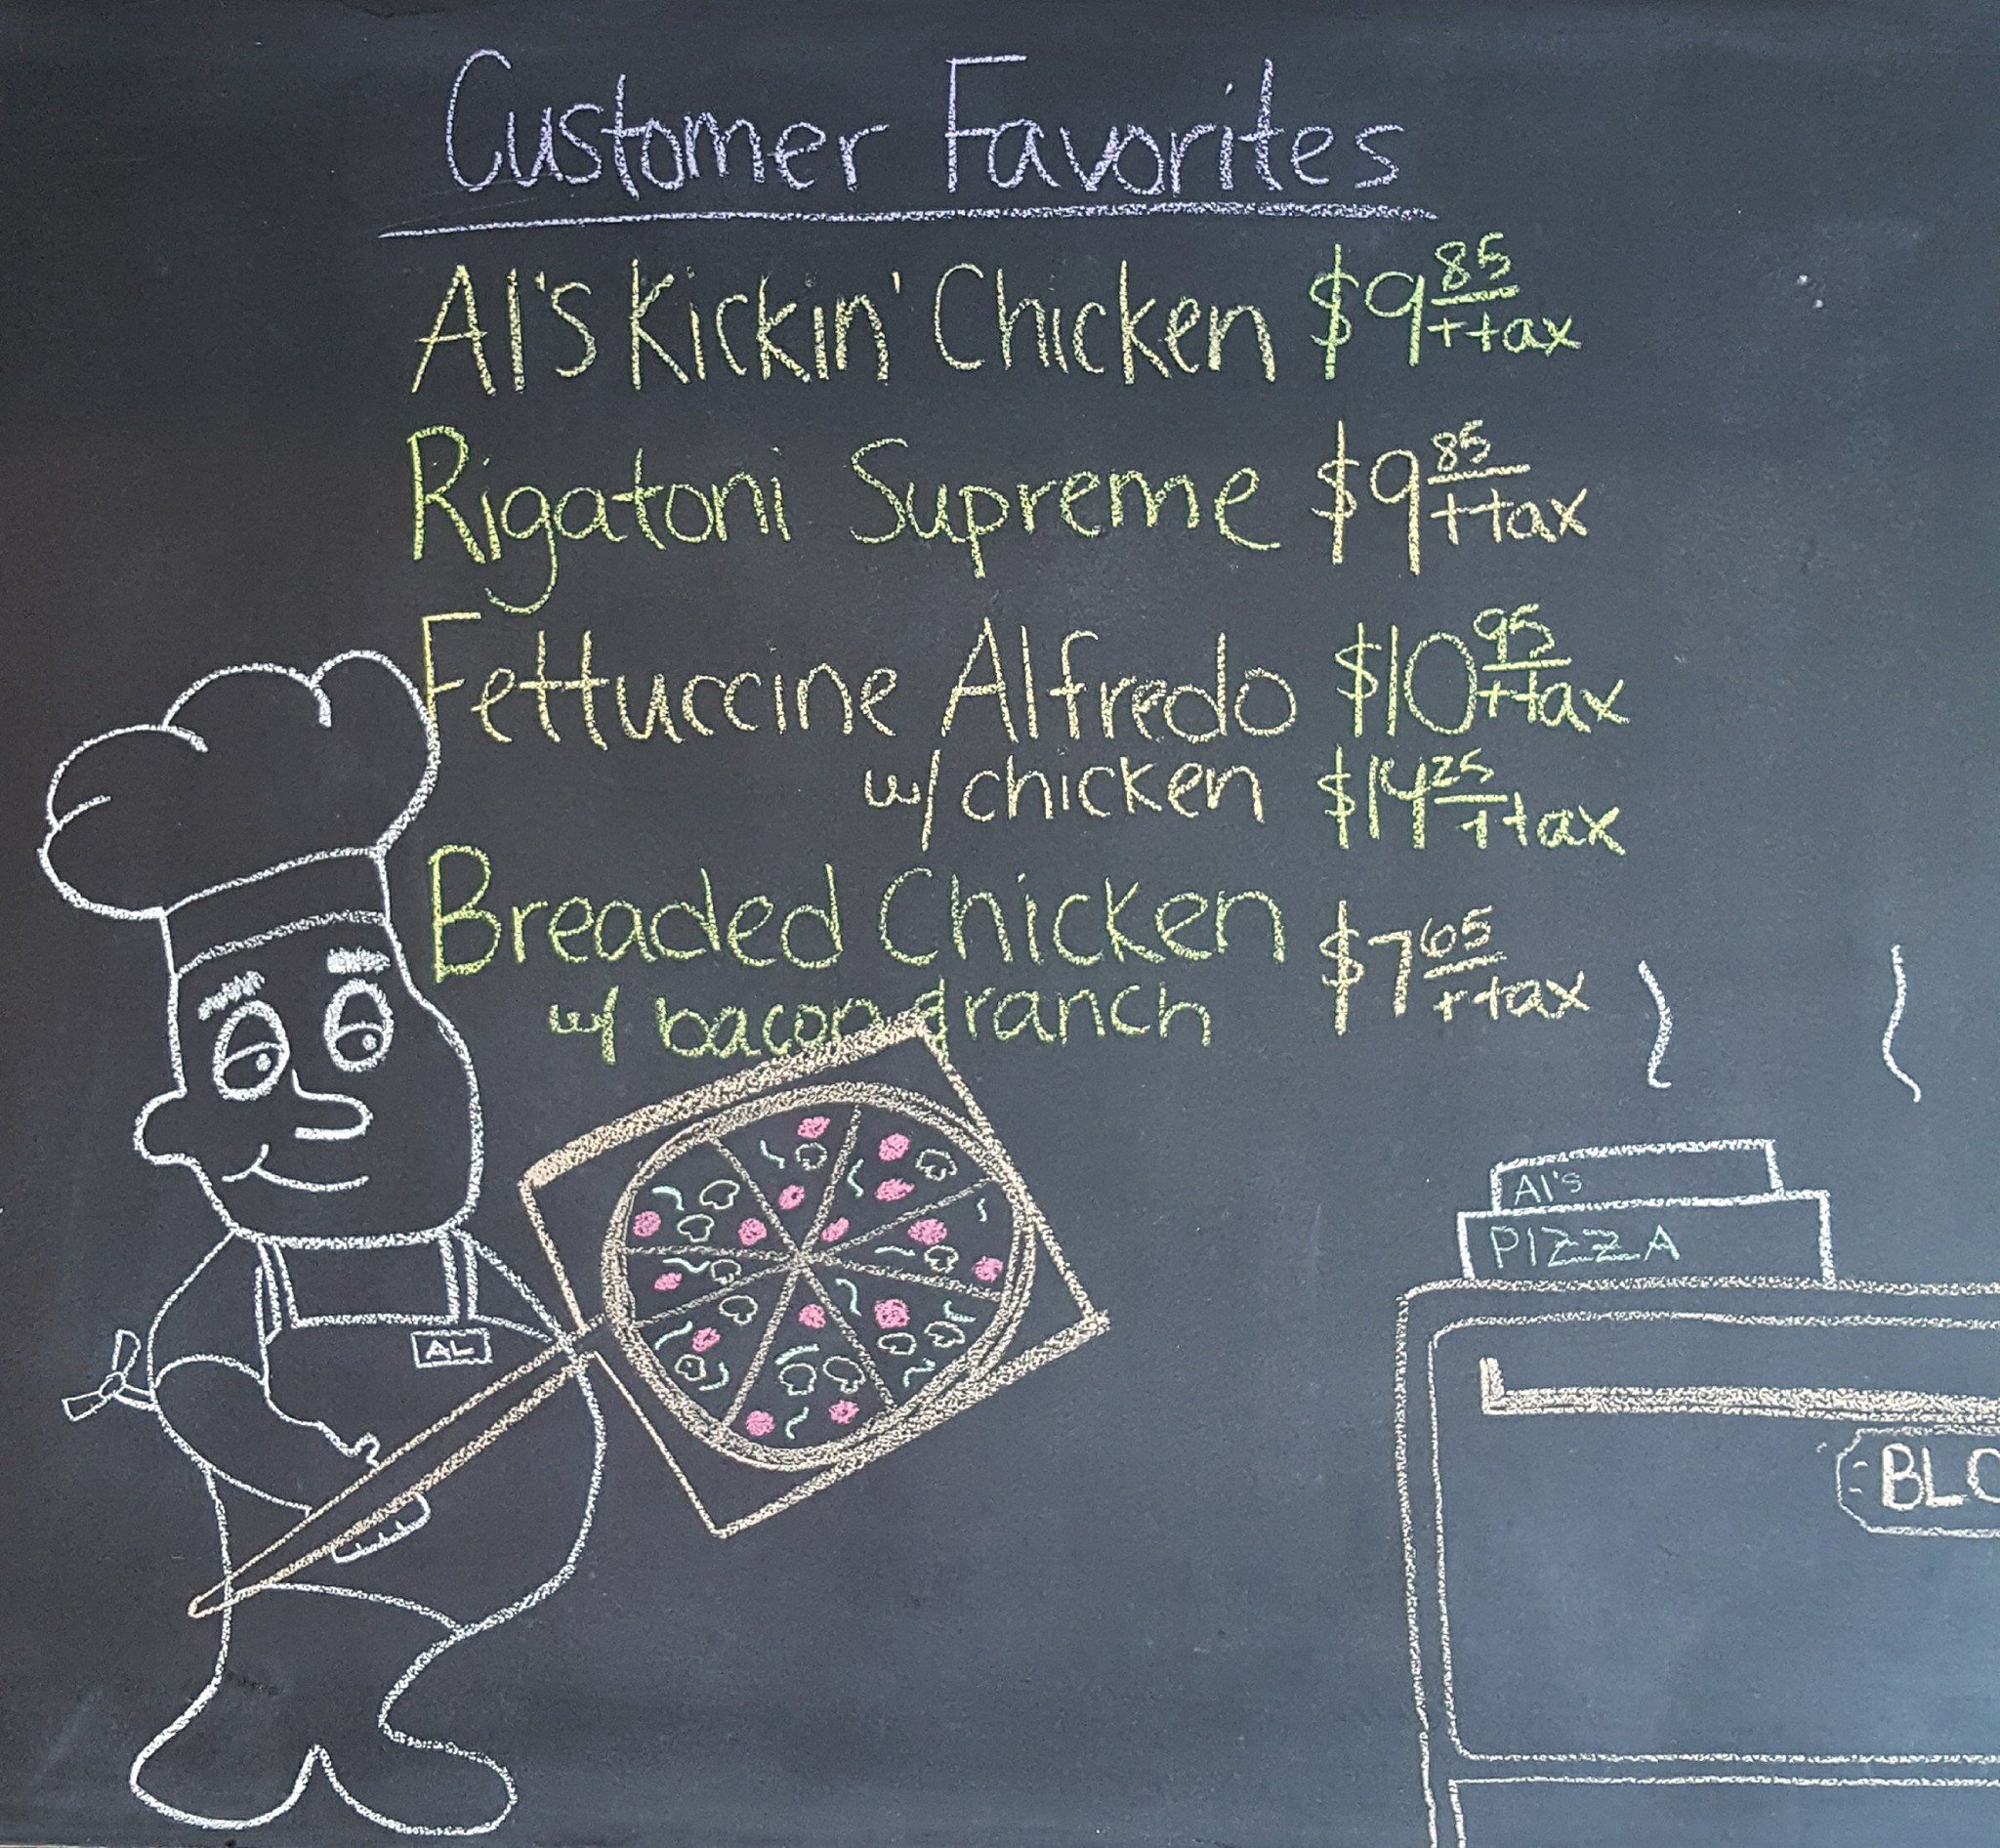 Customer Favorites
Al's Kickin' Chicken $9 85 + tax
Rigatoni Supreme $9 85 + tax
Fettuccine Alfredo $10 95 + tax
w/ chicken $14 25 + tax
Breaded Chicken $7 65 + tax
w/ bacon & ranch
AL
Al's
PIZZA
BLO